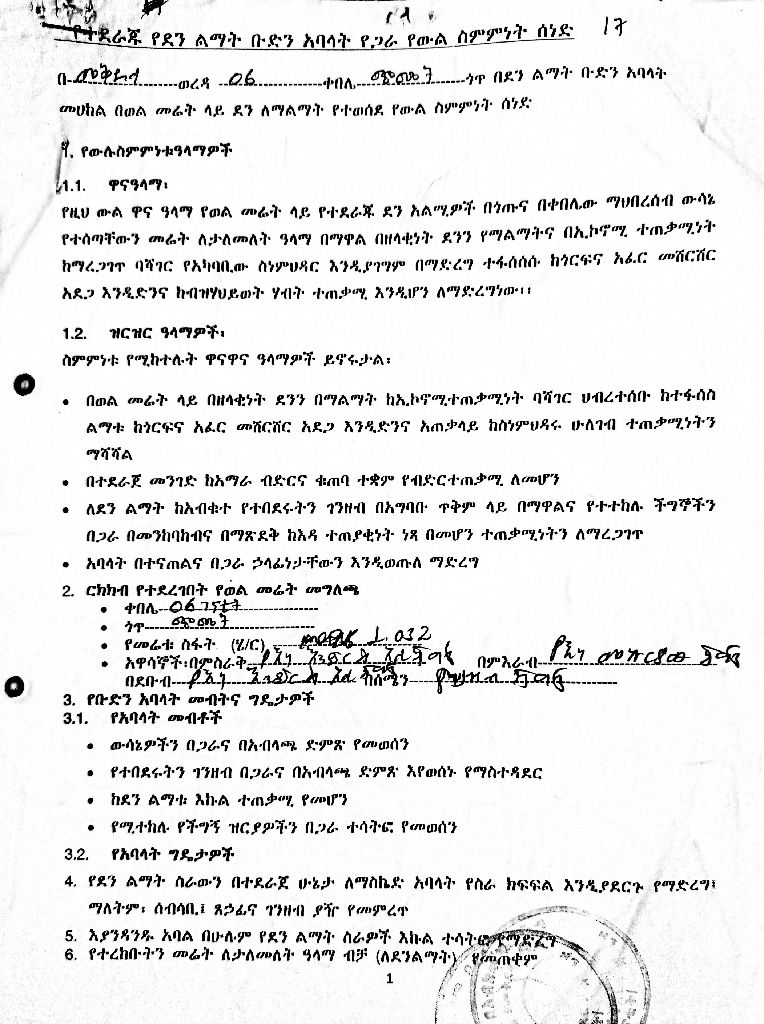 የተደራጁ የደን ልማት ቡድን አባላት የጋራ የውል ስምምነት ሰነድ 17
በ ወረዳ 06 ቀበሌ ጭጨት ጎጥ በደን ልማት ቡድን አባላት
መሀከል በወል መሬት ላይ ደን ለማልማት የተወሰደ የውል ስምምነት ሰነድ
1. የውሉስምምነቱዓላማዎች
1.1. ዋናዓላማ፡
የዚህ ውል ዋና ዓላማ የወል መሬት ላይ የተደራጁ ደን አልሚዎች በጎጡና በቀበሌው ማህበረሰብ ውሳኔ
የተሰጣቸውን መሬት ለታለመለት ዓላማ በማዋል በዘላቂነት ደንን የማልማትና በኢኮኖሚ ተጠቃሚነት
ከማረጋገጥ ባሻገር የአካባቢው ስነምህዳር እንዲያገግም በማድረግ ተፋሰሰሱ ከጎርፍና አፈር መሸርሸር
አደጋ እንዲድንና ከብዝሃህይወት ሃብት ተጠቃሚ እንዲሆን ለማድረግነው፡፡
1.2. ዝርዝር ዓላማዎች፡
ስምምነቱ የሚከተሉት ዋናዋና ዓላማዎች ይኖሩታል፡
• በወል መሬት ላይ በዘላቂነት ደንን በማልማት ከኢኮኖሚተጠቃሚነት ባሻገር ህብረተሰቡ ከተፋሰስ
ልማቱ ከጎርፍና አፈር መሸርሸር አደጋ እንዲድንና አጠቃላይ ከስነምህዳሩ ሁለገብ ተጠቃሚነትን
ማሻሻል
• በተደራጀ መንገድ ከአማራ ብድርና ቁጠባ ተቋም የብድርተጠቃሚ ለመሆን
• ለደን ልማት ከአብቁተ የተበደሩትን ገንዘብ በአግባቡ ጥቅም ላይ በማዋልና የተተከሉ ችግኞችን
በጋራ በመንከባከብና በማጽደቅ ከእዳ ተጠያቂነት ነጻ በመሆን ተጠቃሚነትን ለማረጋገጥ
• አባላት በተናጠልና በጋራ ኃላፊነታቸውን እንዲወጡለ ማድረግ
2. ርክክብ የተደረገበት የወል መሬት መግለጫ
• ቀበሌ 06
• ጎጥ ጭጨት
• የመሬቱ ስፋት (ሄ/ር) 1.032
• አዋሳኞች፡በምስራቅ በምእራብ
በደቡብ በሰሜን
3. የቡድን አባላት መብትና ግዴታዎች
3.1. የአባላት መብቶች
• ውሳኔዎችን በጋራና በአብላጫ ድምጽ የመወሰን
• የተበደሩትን ገንዘብ በጋራና በአብላጫ ድምጽ እየወሰኑ የማስተዳደር
• ከደን ልማቱ እኩል ተጠቃሚ የመሆን
• የሚተከሉ የችግኝ ዝርያዎችን በጋራ ተሳትፎ የመወሰን
3.2. የአባላት ግዴታዎች
4. የደን ልማት ስራውን በተደራጀ ሁኔታ ለማስኬድ አባላት የስራ ክፍፍል እንዲያደርጉ የማድረግ፤
ማለትም፡ ሰብሳቢ፤ ጸኃፊና ገንዘብ ያዥ የመምረጥ
5. እያንዳንዱ አባል በሁሉም የደን ልማት ስራዎች እኩል ተሳትፎ የማድረግ
6. የተረከቡትን መሬት ለታለመለት ዓላማ ብቻ (ለደንልማት) የመጠቀም
1